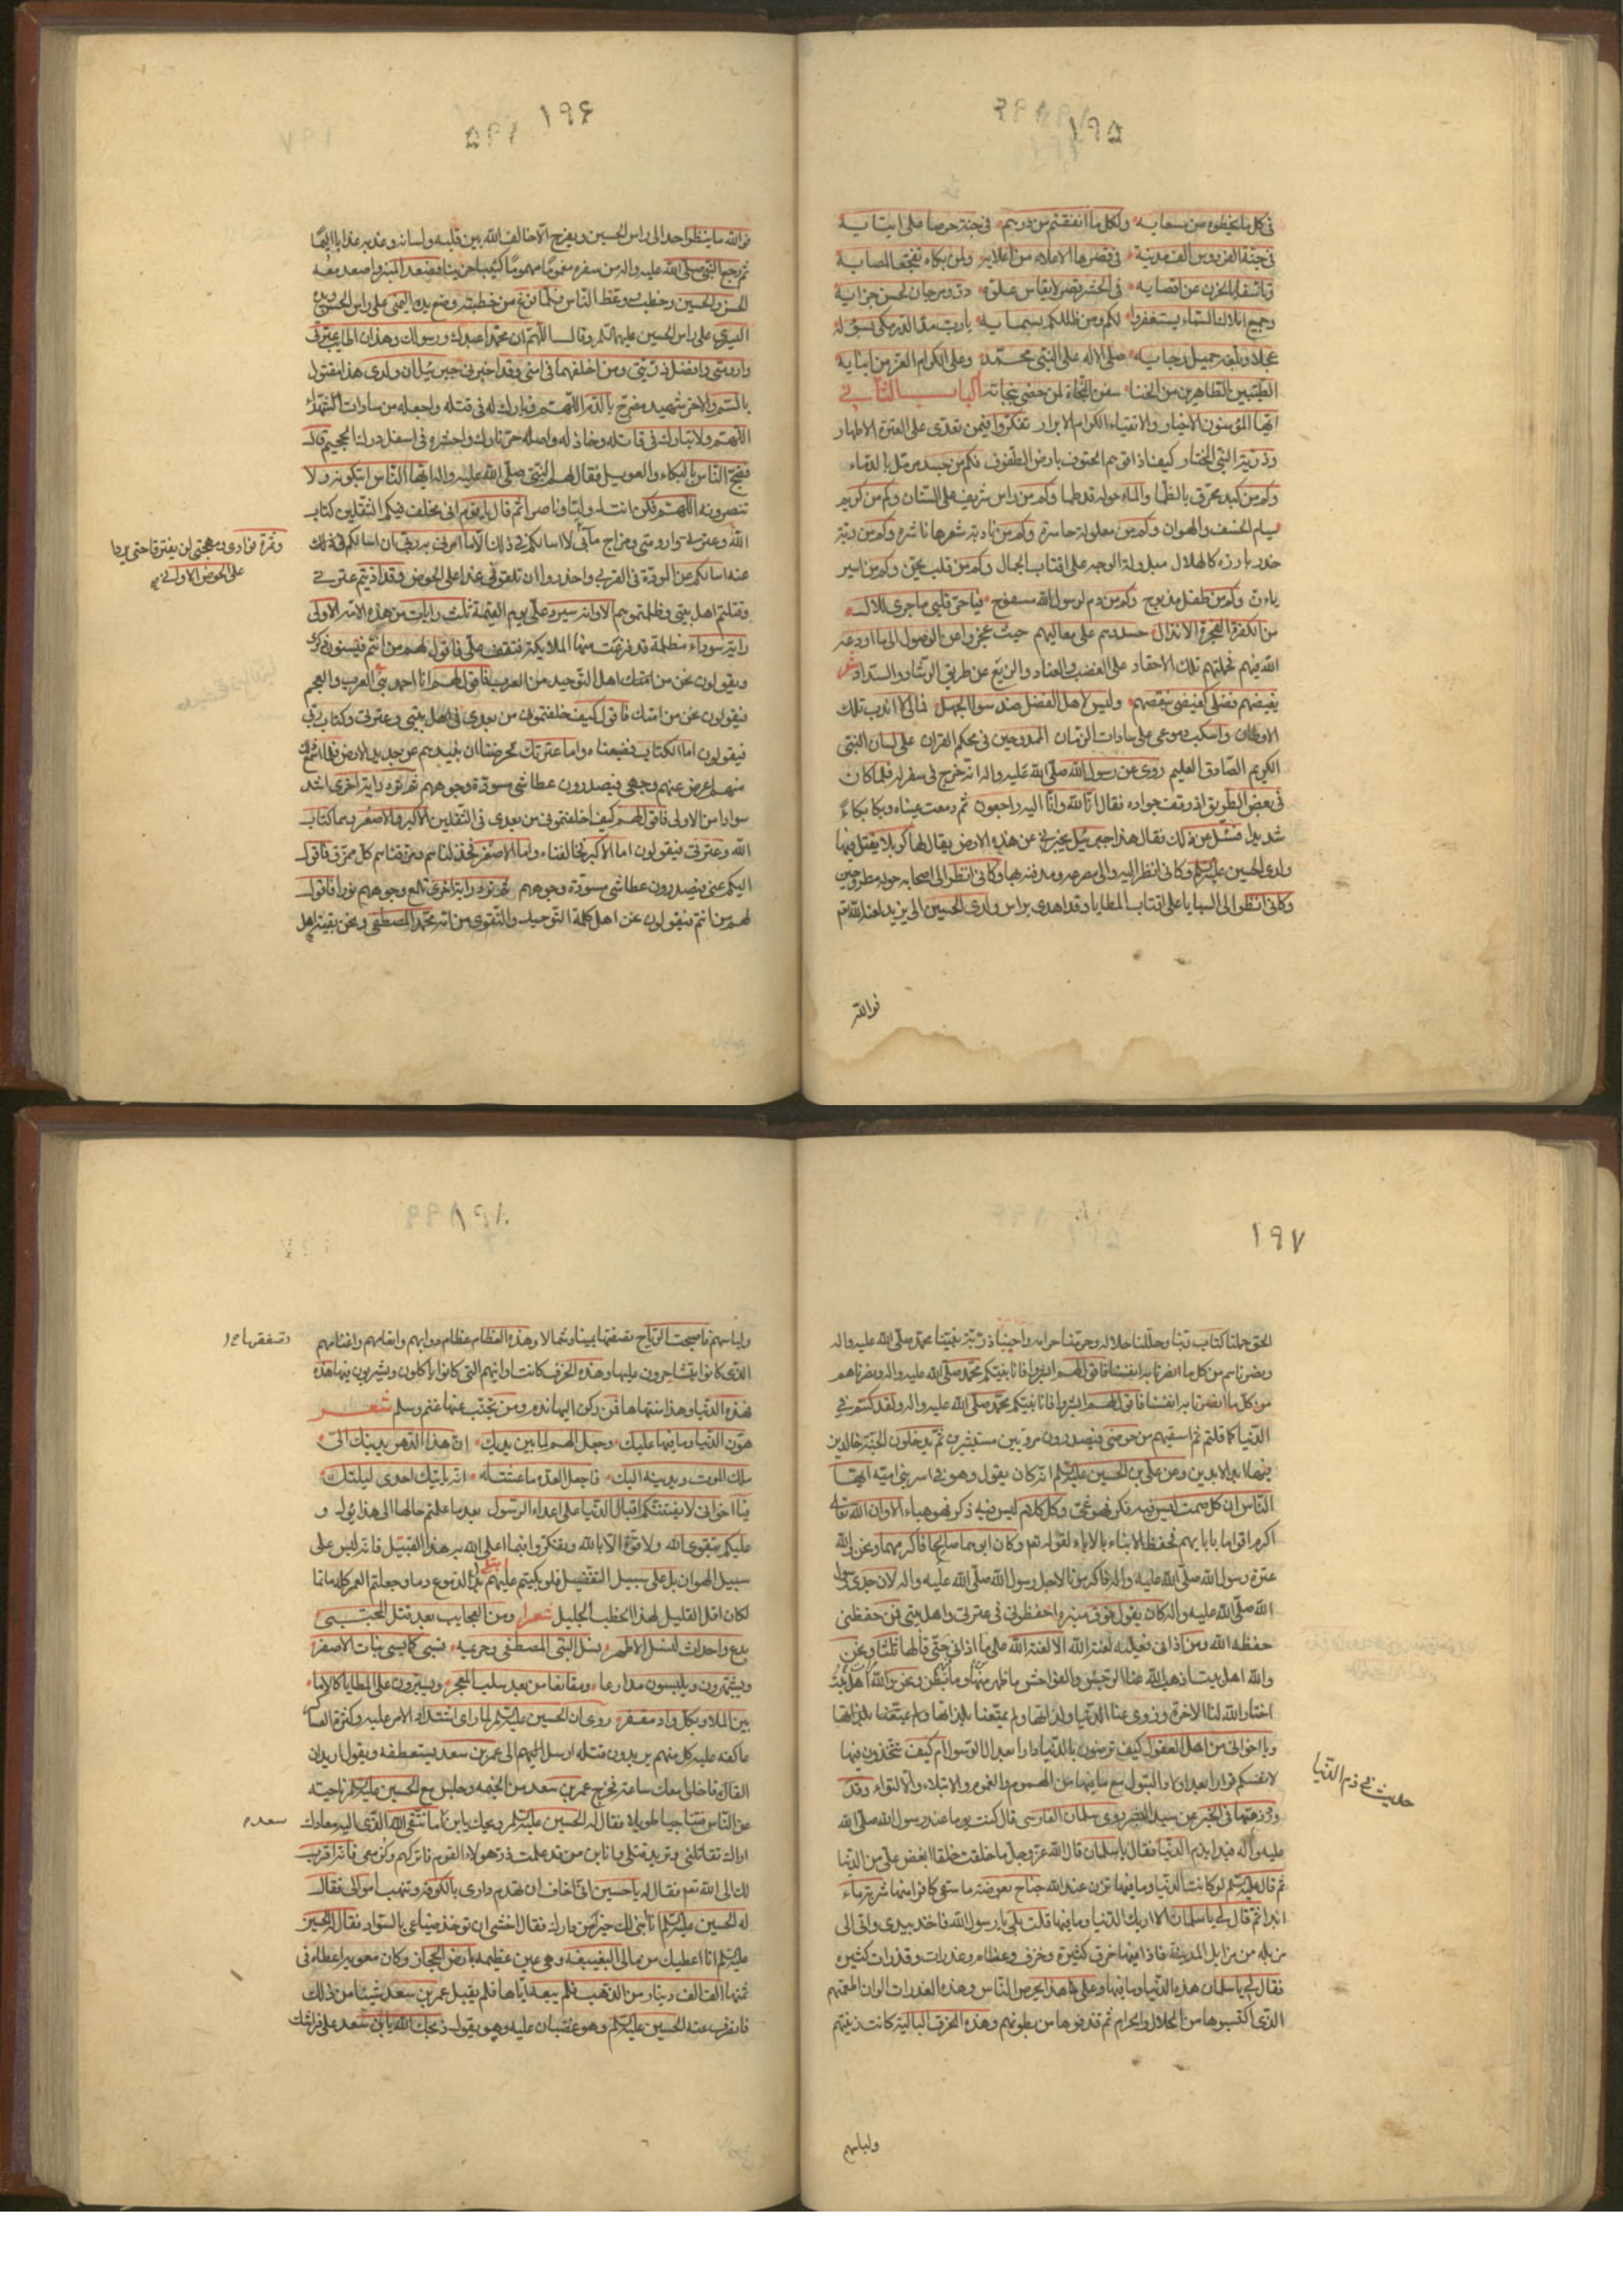 ١٩٥
في كل ما يخطوه من سعايه ولكل ما انفقتم من درهم في جنة
في جنة الفردوس في قصرها الاعلاء من اعلايه ولمن بكاء تفجعا لمصابه
وجميع املاك السماء يستغفروا لكم ومن ظللكم بسمايه يا رب
عجلا وبلغه جميل رجايه صلى الاله على النبي محمد وعلى الكرام الغر من ابنايه
الطيبين الطاهرين من الخنا سفن النجاة لمن حضى بنجاته الباب الثاني
ايها المؤمنون الاخيار والاتقياء الكرام الابرار تفكروا فيمن تعدى على العترة الاطهار
وذرية النبي المختار كيف اذاقوهم الحتوف بارض الطفوف فكم من جسد مرمل بالدماء
وكم من كبد محرق بالظما والماء حوله قد طما وكم من راس شريف على السنان وكم من كريم
يسام الخسف والهوان وكم من معلولة حاسرة وكم من نادبة شعرها ناشرة وكم من ربة
خدر بارزة كالهلال مبذولة الوجه على اقتاب الجمال وكم من قلب يحن وكم من اسير
يان وكم من طفل مذبوح وكم من دم لرسول الله مسفوح فيا حر قلبي ما جرى للال
من الكفرة الفجرة الانذال حسدهم على معاليهم حيث عجزوا عن الوصول الى ما اودعه
الله فيهم فحملتهم تلك الاحقاد على الغضب والعناد والزيغ عن طريق الرشاد والسداد شعر
يغيضهم فضلي كغيضي بنقصهم وليس لاهل الفضل ضد سوا الجهل فما لي لا اندب تلك
الاوطان واسكب دموعي على سادات الزمان الممدوحين في محكم القران على لسان النبي
الكريم الصادق العليم روي عن رسول الله صلى الله عليه واله انه خرج في سفر له فلما كان
في بعض الطريق اذ وقف جواده فقال انا لله وانا اليه راجعون ثم دمعت عيناه وبكا بكاء
شديدا فسئل عن ذلك فقال هذا جبرئيل يخبرني عن هذه الارض يقال لها كربلا يقتل فيها
ولدي الحسين عليه السلم وكاني انظر اليه والى مصرعه ومدفنه بها وكاني انظر الى اصحابه حوله مطروحين
وكاني انظر الى السبايا على اقتاب المطايا وقد اهدي براس ولدي الحسين الى يزيد لعنه الله تع
فوالله
١٩٦
فوالله ما ينظر احد الى راس الحسين ويفرح الا خالف الله بين قلبه ولسانه وعذبه عذابا اليما
ثم رجع النبي صلى الله عليه واله من سفره مغموما مهموما كئيبا حزينا فصعد المنبر واصعد معه
الحسن والحسين وخطب ووعظ الناس فلما فرغ من خطبته وضع يده اليمنى على راس الحسن ويده
اليسرى على راس الحسين عليهما السلم وقال اللهم ان محمدا عبدك ورسولك وهذان اطايب عترتي
وارومتي وافضل ذريتي ومن اخلفهما في امتي وقد اخبرني جبرئيل ان ولدي هذا مقتول
بالسم والاخر شهيد مضرج بالدم اللهم فبارك له في قتله واجعله من سادات الشهداء
اللهم ولا تبارك في قاتله وخاذله واصله حر نارك واحشره في اسفل درك الجحيم قال
فضج الناس بالبكاء والعويل فقال لهم النبي صلى الله عليه واله ايها الناس اتبكونه ولا
تنصرونه اللهم فكن انت له وليا وناصرا ثم قال يا قوم اني مخلف فيكم الثقلين كتاب
الله وعترتي وارومتي ومزاج مائي
وثمرة فوادي ومهجتي لن يفترقا حتى يردا
على الحوض الا واني
لا اسالكم في ذلك الا ما امرني به ربي ان اسالكم في ذلك
عنه اسالكم عن المودة في القربى واحذروا ان تلقوني غدا على الحوض وقد اذيتم عترتي
وقتلتم اهل بيتي وظلمتموهم الا وانه سيرد علي يوم القيمة ثلث رايات من هذه الامة الاولى
راية سوداء مظلمة قد فزعت منها الملائكة فتقف علي فاقول لهم من انتم فينسون ذكري
ويقولون نحن من اهل التوحيد من العرب فاقول لهم انا احمد نبي العرب والعجم
فيقولون نحن من امتك فاقول كيف خلفتموني من بعدي في اهل بيتي وعترتي وكتاب ربي
فيقولون اما الكتاب فضيعناه واما عترتك فحرصنا ان نبيدهم عن جديد الارض فلما اسمع
منهم اعرض عنهم وجهي فيصدرون عطاشى مسودة وجوههم ثم ترد راية اخرى اشد
سوادا من الاولى فاقول لهم كيف اخلفتموني من بعدي في الثقلين الاكبر والاصغر وهما كتاب
الله وعترتي فيقولون اما الاكبر فخالفناه واما الاصغر فخذلناهم ومزقناهم كل ممزق فاقول
اليكم عني فيصدرون عطاشى مسودة وجوههم ثم ترد راية اخرى تلمع وجوههم نورا فاقول
لهم من انتم فيقولون نحن اهل كلمة التوحيد والتقوى من امة محمد المصطفى ونحن بقية اهل
١٩٧
الحق حملنا كتاب ربنا وحللنا حلاله وحرمنا حرامه واحببنا ذرية نبينا محمد صلى الله عليه واله
ونصرناهم من كل ما نصرنا به انفسنا فاقول لهم ابشروا فانا نبيكم محمد صلى الله عليه واله ونصرناهم
من كل ما نصرنا به انفسنا فاقول لهم ابشروا فانا نبيكم محمد صلى الله عليه واله ولقد كنتم في
الدنيا كما قلتم ثم اسقيهم من حوضي فيصدرون مرويين مستبشرين ثم يدخلون الجنة خالدين
فيها ابد الابدين وعن علي بن الحسين عليه السلم انه كان يقول وهو في اسر بني امية ايها
الناس ان كل صمت ليس فيه فكر فهو عي وكل كلام ليس فيه ذكر فهو هباء الا وان الله تعالى
اكرم اقواما بابايهم فحفظ الابناء بالاباء لقوله تع وكان ابوهما صالحا فاكرمهما ونحن والله
عترة رسول الله صلى الله عليه واله فاكرمونا لاجل رسول الله صلى الله عليه واله لان جدي رسول
الله صلى الله عليه واله كان يقول فوق منبره احفظوني في عترتي واهل بيتي فمن حفظني
حفظه الله ومن اذاني فعليه لعنة الله الا لعنة الله على من اذاني حتى قالها ثلثا ونحن
والله اهل بيت اذهب الله عنا الرجس والفواحش ما ظهر منها وما بطن ونحن والله اهل بيت
اختار الله لنا الاخرة وزوى عنا الدنيا ولذاتها ولم يمتعنا بلذاتها
ويا اخواني من اهل العقول كيف ترضون بالدنيا دارا بعد ال الرسول ام كيف تتخذون فيها
لانفسكم قرارا بعد اولاد البتول مع ما فيها من الهموم والغموم والابتلاء والالتواء وقد
ورد ذمها في الخبر عن سيد البشر روى سلمان الفارسي قال كنت يوما عند رسول الله صلى الله
حديث في ذم الدنيا
عليه واله فبدا بذم الدنيا فقال يا سلمان قال الله عز وجل ما خلقت خلقا ابغض علي من الدنيا
ثم قال عليه السلم لو كانت الدنيا وما فيها تزن عند الله جناح بعوضة ما سقى كافرا منها شربة ماء
ابدا ثم قال لي يا سلمان الا اريك الدنيا وما فيها قلت بلى يا رسول الله فاخذ بيدي واتى الى
مزبلة من مزابل المدينة فاذا فيها خرق كثيرة وخزف وعظام وعذرات وقذرات كثيرة
فقال لي يا سلمان هذه الدنيا وما فيها وعلى هذا يحرص الناس وهذه العذرات الوان اطعمتهم
الذي اكتسبوها من الحلال والحرام ثم قذفوها من بطونهم وهذه الخرق البالية كانت زينتهم
ولباسهم
١٩٨
ولباسهم فاصبحت الرياح تصفقها يمينا وشمالا وهذه العظام عظام دوابهم وانعامهم واغنامهم
الذي كانوا يتشاجرون عليها وهذه الخزف كانت اوانيهم التي كانوا ياكلون ويشربون فيها هذه
فهذه الدنيا وهذا منتهاها فمن ركن اليها ندم ومن تجنب عنها غنم وسلم شعر
هون الدنيا وما فيها عليك وجعل الهم لما بين يديك ان هذا الدهر يدنيك الى
ملك الموت ويدنيه اليك فاجعل العدة ما عشت له انه ياتيك احدى ليلتيك
فيا اخواني لا يفتننكم اقبال الدنيا على اعداء الرسول بعد ما علمتم حالها الى هذا يؤل و
عليكم بتقوى الله ولا قوة الا بالله وتفكروا فيما على الله بهذا القبيل فانه ليس على
سبيل الهوان بل على سبيل التفضيل فلو بكيتم عليهم بدل الدموع دما وجعلتم العمر كله ماتما
لكان اقل القليل لهذا الخطب الجليل شعر ومن العجايب بعد قتل المجتبى
بدع واحداث لنسل الاطهر نسل النبي المصطفى وحريمه تسبى كما يسبى بنات الاصفر
بين الملا وبكل واد مقفر روي ان الحسين عليه السلم لما راى اشتداد الامر عليه وكثرة العساكر
عاكفة عليه كل منهم يريدون قتله ارسل اليهم الى عمر بن سعد يستعطفه ويقول اريد ان
القاك فاخلو معك ساعة فخرج عمر بن سعد من الخيمة وجلس مع الحسين عليه السلم ناحية
عن الناس فتناجيا طويلا فقال له الحسين عليه السلم ويحك يا بن سعد اما تتقي الله الذي اليه معادك
اراك تقاتلني وتريد قتلي وانا ابن من قد علمت ذر هولاء القوم واتركهم وكن معي فانه اقرب
لك الى الله تع فقال له يا حسين اني اخاف ان تهدم داري بالكوفة وتنهب اموالي فقال
له الحسين عليه السلم انا ابني لك خيرا من دارك فقال اخشى ان توخذ ضياعي بالسواد فقال له الحسين
عليه السلم انا اعطيك من مالي البغيبغة وهي عين عظيمة بارض الحجاز وكان معوية اعطاه في
ثمنها الف الف دينار من الذهب فلم يبعه اياها فلم يقبل عمر بن سعد شيئا من ذلك
فانصرف عنه الحسين عليه السلم وهو غضبان عليه وهو يقول ذبحك الله يا بن سعد على فراشك